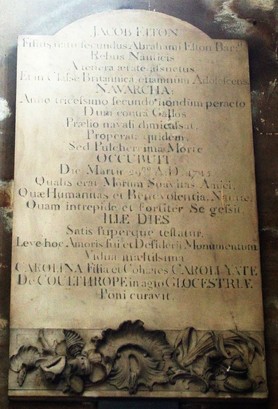 JACOB ELTON
Filius natu secundus Abrahami Elton Bar.
Rebus Nauticis
A tenera ætate assuetus
Et in Classe Britannica etiamnum Adolescens
NAVARCHA:
Anno tricesimo secundo nondum peracto
Dum contra Gallos
Prælio navali dimicabat,
Properata quidem,
Sed Pulcherrima Morte
OCCUBUIT.
Die Martii 29 A.D. 1745
Qualis erat Morum Suavitas Amici,
Quæ Humanitas et Benevolentia,
Quam intrepide et Fortiter Se gessit,
ILLE DIES
Satis superque testatur.
Leve hoc Amoris sui et Desiderii Monumentum
Vidua mæstissima
CAROLINA Filia et Cohæres CAROLI YATE
De COULTHROPE in agro GLOCESTRIÆ
Poni curavit.